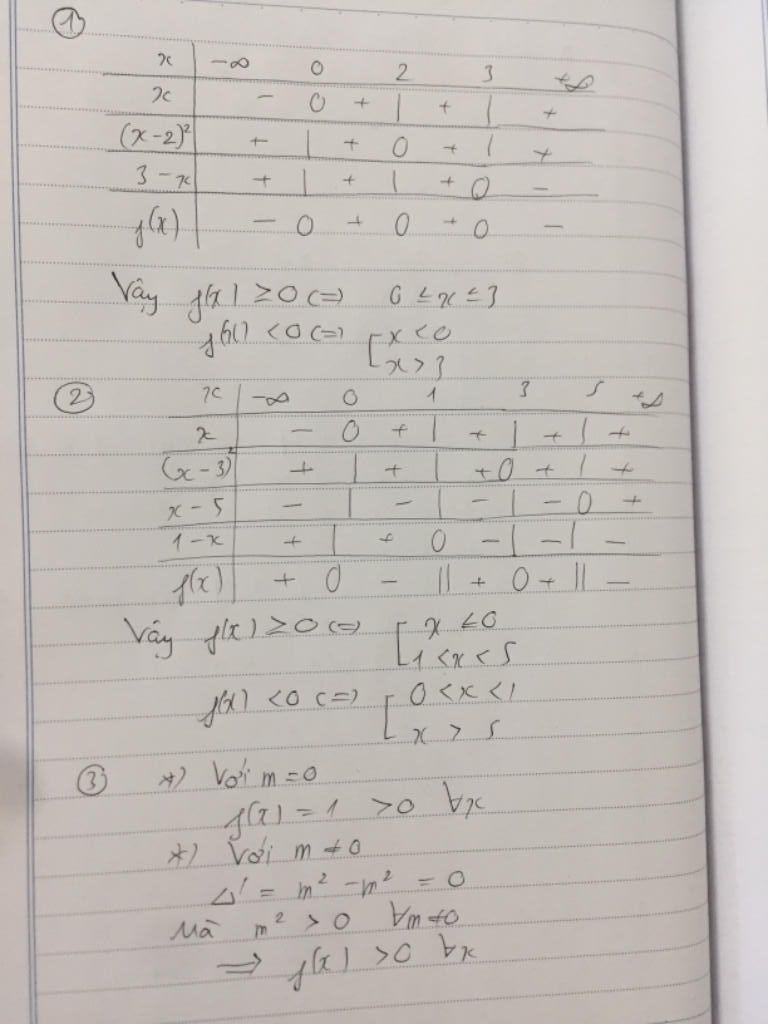 ①
x -∞ 0 2 3 +∞
x - 0 + | + | +
(x-2)² + | + 0 + | +
3-x + | + | + 0 -
f(x) - 0 + 0 + 0 -
Vậy f(x) ≥ 0 <=> 0 ≤ x ≤ 3
f(x) < 0 <=> [ x < 0
x > 3
② x -∞ 0 1 3 5 +∞
x - 0 + | + | + | +
(x-3)² + | + | + 0 + | +
x-5 - | - | - | - 0 +
1-x + | + 0 - | - | -
f(x) + 0 - || + 0 + || -
Vậy f(x) ≥ 0 <=> [ x ≤ 0
1 < x < 5
f(x) < 0 <=> [ 0 < x < 1
x > 5
③ *) Với m = 0
f(x) = 1 > 0 ∀x
*) Với m ≠ 0
Δ' = m² - m² = 0
Mà m² > 0 ∀m ≠ 0
=> f(x) > 0 ∀x